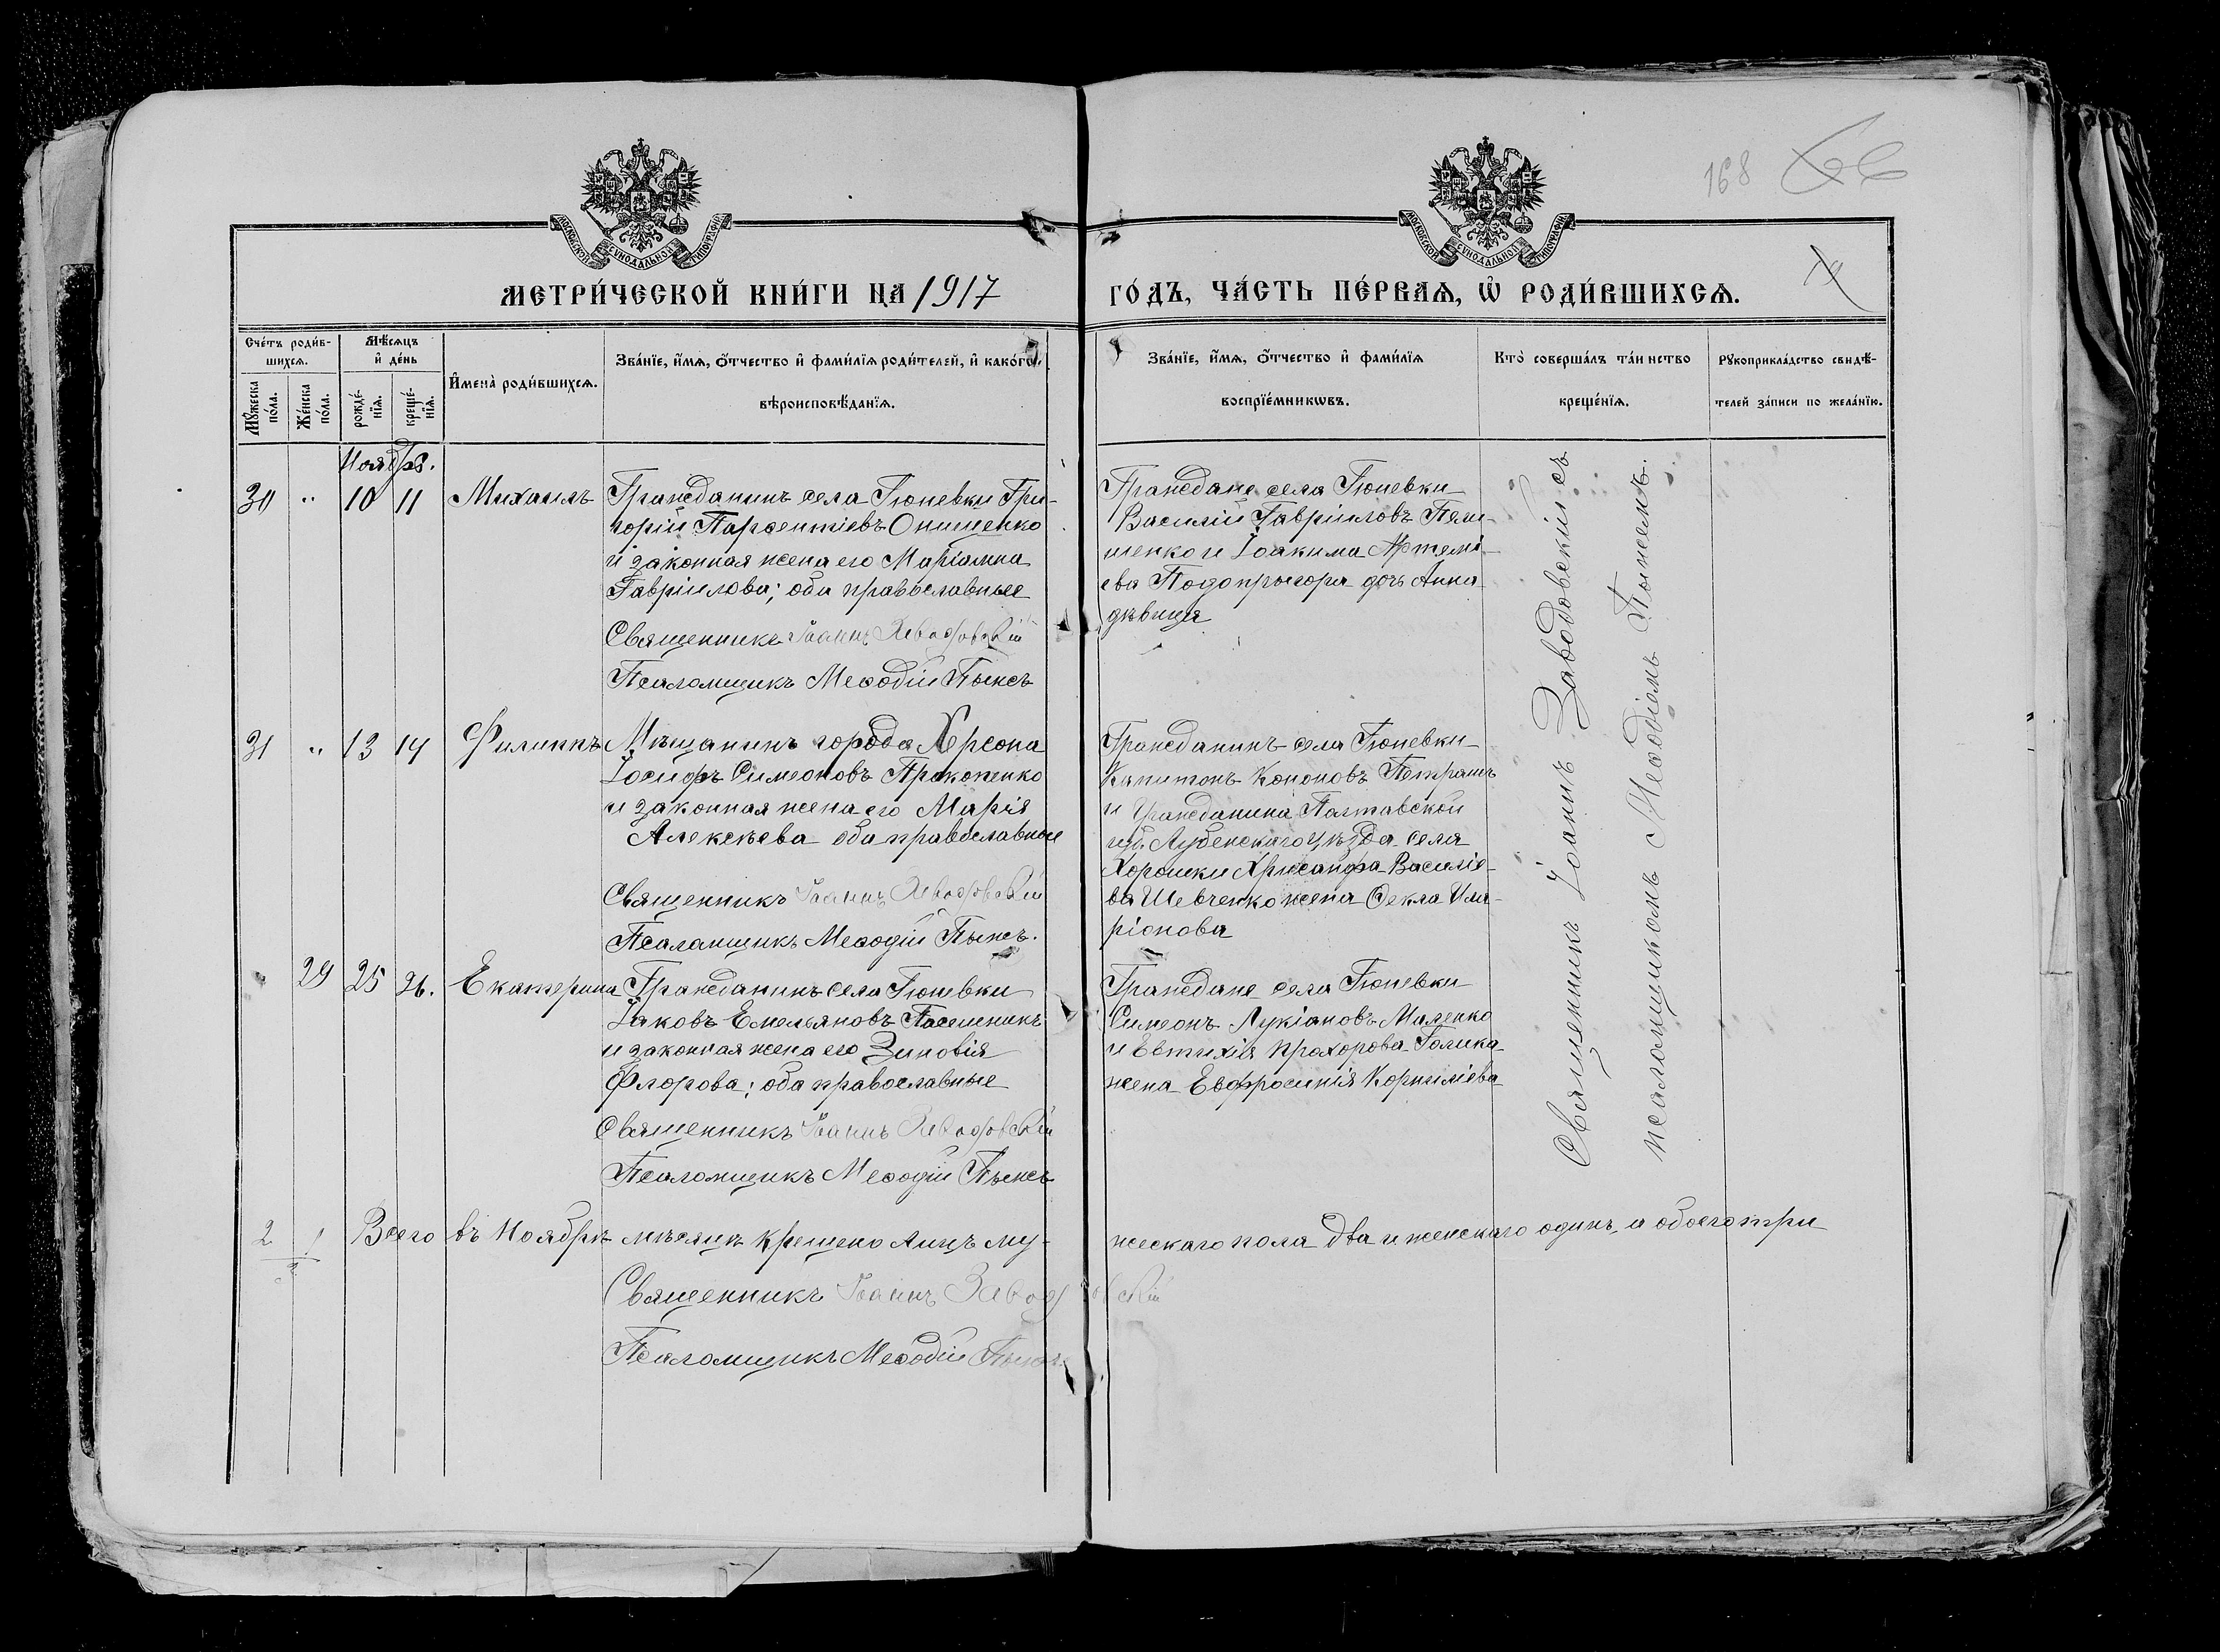 168
МОСКОВСКОЙ СѴНОДАЛЬНОЙ ТИПОГРАФІИ
МОСКОВСКОЙ СѴНОДАЛЬНОЙ ТИПОГРАФІИ
МЕТРИ́ЧЕСКОЙ КНИ́ГИ НА 1917
ГО́ДЪ, ЧА́СТЬ ПЕ́РВАѦ, Ѡ РОДИ́ВШИХСѦ.
Сче́тъ роди́в-
шихсѧ.
Мꙋ́жеска
по́ла.
Же́нска
по́ла.
Мѣ́сѧцъ
и҆ де́нь
рожде́-
нїѧ.
креще́-
нїѧ.
И҆мена̀ роди́вшихсѧ.
Зва́нїе, и҆́мѧ, ѻ҆́тчество и҆ фами́лїѧ роди́телей, и҆ како́гѡ
вѣроисповѣ́данїѧ.
Зва́нїе, и҆́мѧ, ѻ҆́тчество и҆ фами́лїѧ
воспрїе́мникѡвъ.
Кто̀ соверша́лъ та́инство
креще́нїѧ.
Рꙋкоприкла́дство свидѣ́-
телей за́писи по жела́нїю.
Ноября.
30 " 10 11 Михаилъ
Гражданинъ села Гюневки Гри-
горій Парѳентіевъ Онищенко
и законная жена его Маріамна
Гавріилова; оба православные
Священникъ Іоаннъ Заводовскій
Псаломщикъ Меѳодій Пыжъ
Граждане села Гюневки
Василій Гавріиловъ
и Іоакима Артемі-
ева Подопригора дочь Анна
дѣвица
31 " 13 14 Филиппъ
Мѣщанинъ города Херсона
Іосифъ Симеоновъ Прокопенко
и законная жена его Марія
Алексѣева оба православные
Священникъ Іоаннъ Заводовскій
Псаломщикъ Меѳодій Пыжъ.
Гражданинъ села Гюневки
Капитонъ Кононовъ Петрашъ
и гражданина Полтавской
губ. Лубенскаго уѣзда села
Хорошки Хрисанфа Василіе-
ва Шевченко жена Ѳекла Ила-
ріонова
" 29 25 26. Екатерина
Гражданинъ села Гюневки
Іаковъ Емельяновъ Пасешникъ
и законная жена его Зиновія
Флорова; оба православные
Священникъ Іоаннъ Заводовскій
Псаломщикъ Меѳодій Пыжъ
Граждане села Гюневки
Симеонъ Лукіановъ Маленко
и Евтихія Прохорова Голика
жена Евфросинія Корниліева
Священникъ Іоаннъ Заводовскій съ
псаломщикомъ Меѳодіемъ Пыжемъ.
2 1 Всего въ Ноябрѣ мѣсяцѣ крещено лицъ му-
жескаго пола два и женскаго одинъ, а обоего три
3
Священникъ Іоаннъ Заводовскій
Псаломщикъ Меѳодій Пыжъ